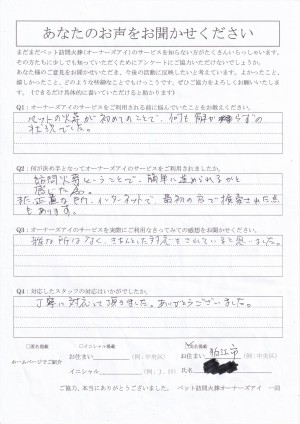 あなたのお声をお聞かせください
まだまだペット訪問火葬(オーナーズアイ)のサービスを知らない方がたくさんいらっしゃいます。
その方たちに少しでも知っていただくためにアンケートにご協力いただけないでしょうか。
あなた様のご意見をお聞かせいただき、今後の活動に反映したいと考えています。よかったこと、
嬉しかったこと、どのような些細なことでもけっこうです。ぜひ、ご協力をよろしくお願いいたしま
す。(できるだけ具体的に書いていただけると助かります)
Q1:オーナーズアイのサービスをご利用される前に悩んでいたことをお教えください。
ペットの火葬が初めてのことで、何も解らずの
状況でした。
Q2:何が決め手となってオーナーズアイのサービスをご利用されましたか。
訪問火葬ということで、簡単に進められるかと
感じた為。
又、正直な所、インターネットで、最初の方で検索された点
もあります。
Q3:オーナーズアイのサービスを実際にご利用なさってみての感想をお聞かせください。
雑な所はなく、きちんとした対応をされていると思いました。
Q4:対応したスタッフの対応はいかがでしたか。
丁寧に対応して頂きました。ありがとうございました。
□匿名掲載 □イニシャル掲載 氏名掲載
ホームページでご紹介
お住まい (例:中央区)
お住まい 狛江市 (例:中央区)
イニシャル (例:J.H)
氏名
ご協力、本当にありがとうございました。 ペット訪問火葬オーナーズアイ 一同